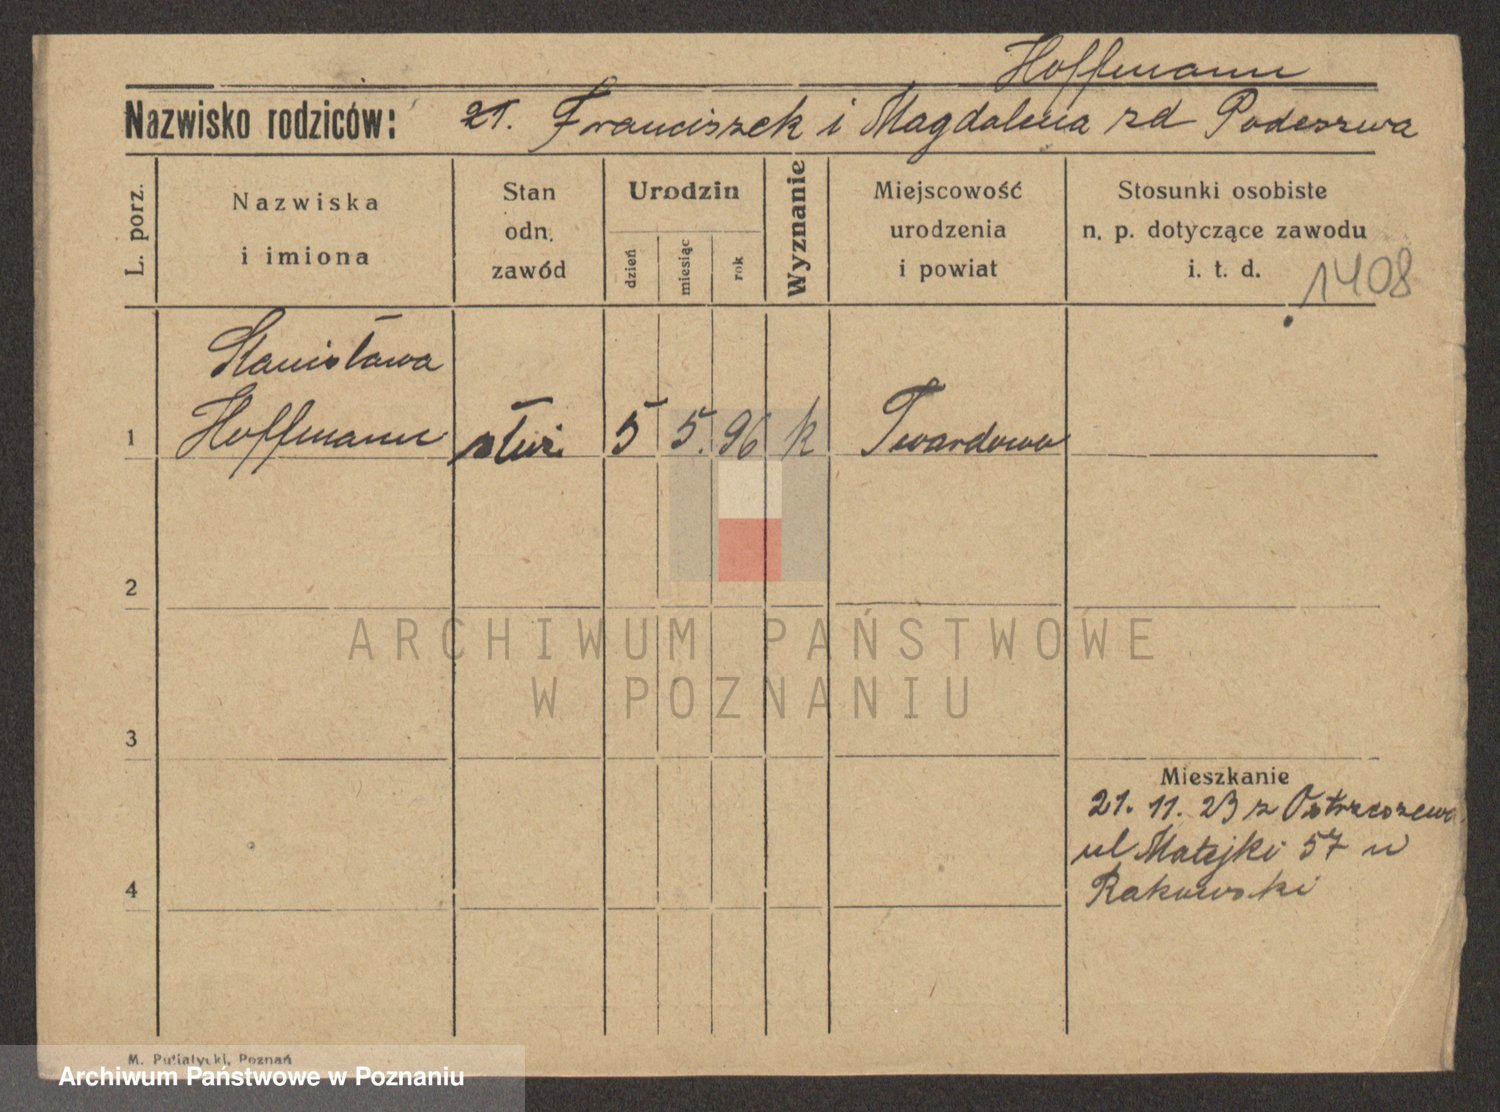 Hoffmann
Nazwisko rodziców: 21. Franciszek i Magdalena zd Podeszwa
L. porz.
Nazwiska
i imiona
Stan
odn.
zawód
Urodzin
dzień
miesiąc
rok
Wyznanie
Miejscowość
urodzenia
i powiat
Stosunki osobiste
n. p. dotyczące zawodu
i. t. d.
1408
Stanisława
1 Hoffmann służ. 5 5. 96 k Twardowo
2
ARCHIWUM PAŃSTWOWE
W POZNANIU
3
Mieszkanie
21. 11. 23 z Ostrzeszewa
ul Matejki 57 u
4 Rakowski
M. Putiatycki, Poznań
Archiwum Państwowe w Poznaniu